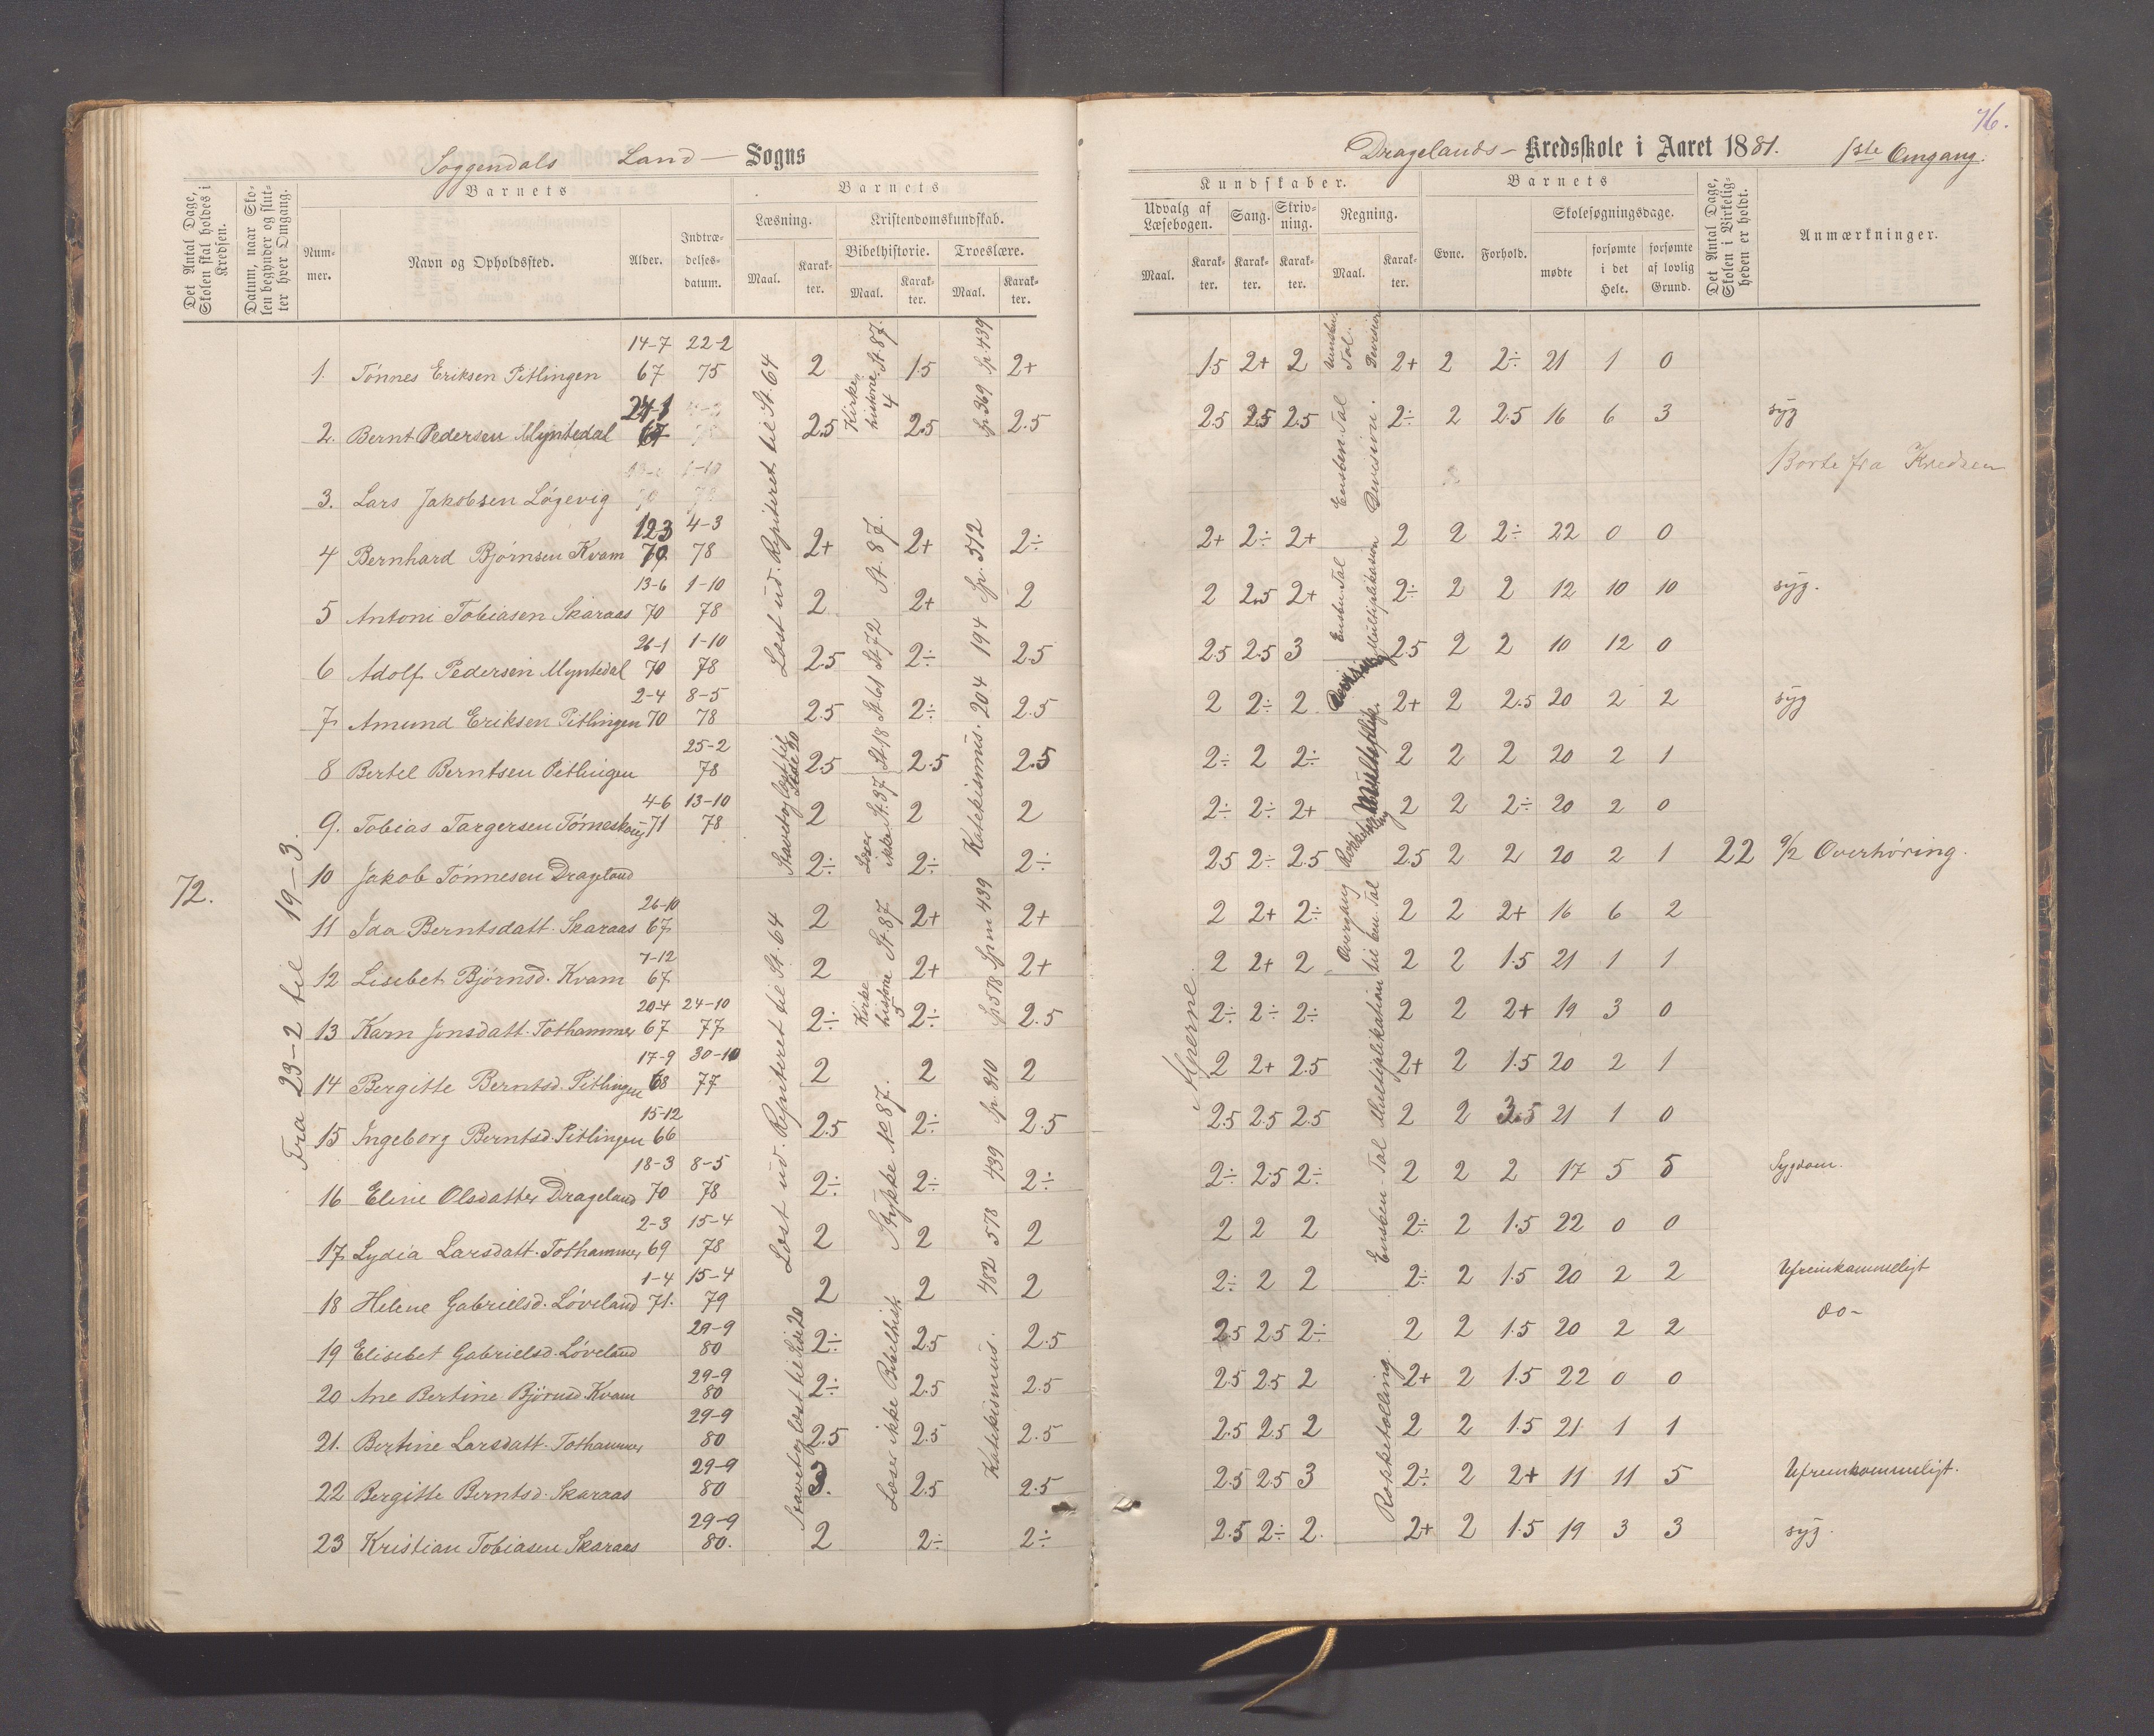 76.
Soggendals Land – Sogns
Dragelands – Kredsskole i Aaret 1881. 1ste Omgang.
Det Antal Dage, Skolen skal holdes i Kredsen.
Datum, naar Skolen begynder og slutter hver Omgang.
Barnets
Nummer.
Navn og Opholdssted.
Alder.
Indtrædelsesdatum.
Barnets
Læsning.
Maal.
Karakter.
Kristendomskundskab.
Bibelhistorie.
Maal.
Karakter.
Troeslære.
Maal.
Karakter.
Kundskaber.
Udvalg af Læsebogen.
Maal.
Karakter.
Sang.
Karakter.
Skrivning.
Karakter.
Regning.
Maal.
Karakter.
Barnets
Evne.
Forhold.
Skolesøgningsdage.
mødte
forsømte i det Hele.
forsømte af lovlig Grund.
Det Antal Dage, Skolen i Virkeligheden er holdt.
Anmærkninger.
72.
Fra 23-2 til 19-3.
1. Tónnes Eriksen Pitlingen 14-7 67 22-2 75 2 1.5 2+ 1.5 2+ 2 2+ 2 2÷ 21 1 0
2. Bernt Pedersen Myntedal 24-1 67 2.5 2.5 2.5 2.5 2.5 2.5 2÷ 2 2.5 16 6 3 syg
3. Lars Jakobsen Lógevig 1-10 Borte fra Kredsen
4 Bernhard Bjørnsen Kvam 12-3 70 4-3 78 2+ 2+ 2÷ 2+ 2÷ 2+ 2 2 2÷ 22 0 0
5 Antoni Tobiasen Skaraas 13-6 70 1-10 78 2 2+ 2 2 2.5 2+ 2÷ 2 2 12 10 10 syg.
6 Adolf Pedersen Myntedal 26-1 70 1-10 78 2.5 2÷ 2.5 2.5 2.5 3 2.5 2 2 10 12 0
7 Amund Eriksen Pitlingen 2-4 70 8-5 78 2.5 2÷ 2.5 2 2÷ 2 2+ 2 2.5 20 2 2 syg
8 Bertel Berntsen Pitlingen 25-2 78 2.5 2.5 2.5 2÷ 2 2÷ 2 2 2 20 2 1
9. Tobias Torgersen 4-6 71 13-10 78 2 2 2 2÷ 2÷ 2+ 2 2 2÷ 20 2 0
10 Jakob Tónnesen Drageland 2÷ 2÷ 2÷ 2.5 2÷ 2.5 2.5 2 2 20 2 1 22 9/2 Overhøring.
11 Ida Berntsdatt. Skaraas 26-10 67 2 2+ 2+ 2 2+ 2÷ 2 2 2+ 16 6 2
12 Lisebet Bjørnsd. Kvam 7-12 67 2 2+ 2+ 2 2+ 2 2 2 1.5 21 1 1
13 Karn Jonsdatt. Tothammer 20-4 67 24-10 77 2÷ 2÷ 2.5 2÷ 2÷ 2÷ 2 2 2+ 19 3 0
14 Bergitte Berntsd. Pitlingen 17-9 68 30-10 77 2 2 2 2 2+ 2.5 2+ 2 1.5 20 2 1
15 Ingeborg Berntsd. Pitlingen 15-12 66 2.5 2÷ 2.5 2.5 2.5 2.5 2 2 21 1 0
16 Eline Olsdatter Drageland 18-3 70 8-5 78 2÷ 2÷ 2÷ 2÷ 2.5 2÷ 2 2 2 17 5 5 Sygdom.
17 Lydia Larsdatt. Tothammer 2-3 69 15-4 78 2 2 2 2 2 2 2÷ 2 1.5 22 0 0
18 Helene Gabrielsd. Lóveland 1-4 71. 15-4 79 2 2 2 2÷ 2 2 2÷ 2 1.5 20 2 2 Ufremkommeligt
19 Elisebet Gabrielsd. Lóveland 29-9 80 2÷ 2.5 2.5 2.5 2.5 2÷ 2 2 1.5 20 2 2 do –
20 Ane Bertine Bjørnsd. Kvam 29-9 80 2÷ 2.5 2.5 2.5 2.5 2 2+ 2 1.5 22 0 0
21. Bertine Larsdatt. Tothammer 29-9 80 2.5 2.5 2.5 2.5 2.5 2 2 2 1.5 21 1 1
22 Bergitte Berntsd. Skaraas 29-9 80 3. 2.5 2.5 2.5 2.5 3 2÷ 2 2+ 11 11 5 Ufremkommeligt.
23 Kristian Tobiasen Skaraas 29-9 80. 2 2÷ 2÷ 2.5 2÷ 2. 2+ 2 1.5 19 3 3 syg.
Læst ud. Repiteret til St. 64
Læst ud. Repiteret til St. 64
Kirkehistorie St. 87. 4
St. 87.
St 72
St. 61
St. 18
Læser ikke St. 37
Kirke historie St. 87 5
Stykke No 87.
Læser ikke Bibelhist.
Sp. 369 Sp. 439
Sp. 512
194
204
Katekismus.
Sp. 578 Spm 439
Sp. 810
439
578
482
Katekismus.
Ensben. Tal Devision.
Ensben Tal Multiplikasion
Overgang til ben. Tal
Ensben. Tal Multiplikation
Rokketælling.